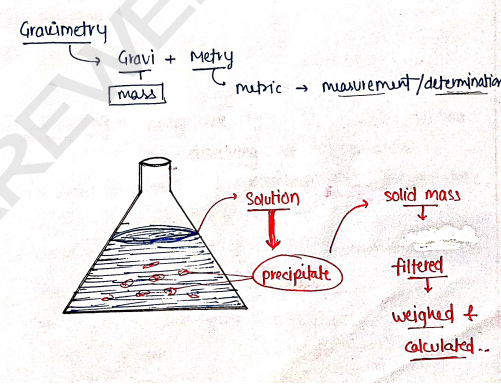 Gravimetry
Gravi + Metry
mass
metric → measurement/determination
Solution
precipitate
solid mass
filtered
weighed &
calculated..